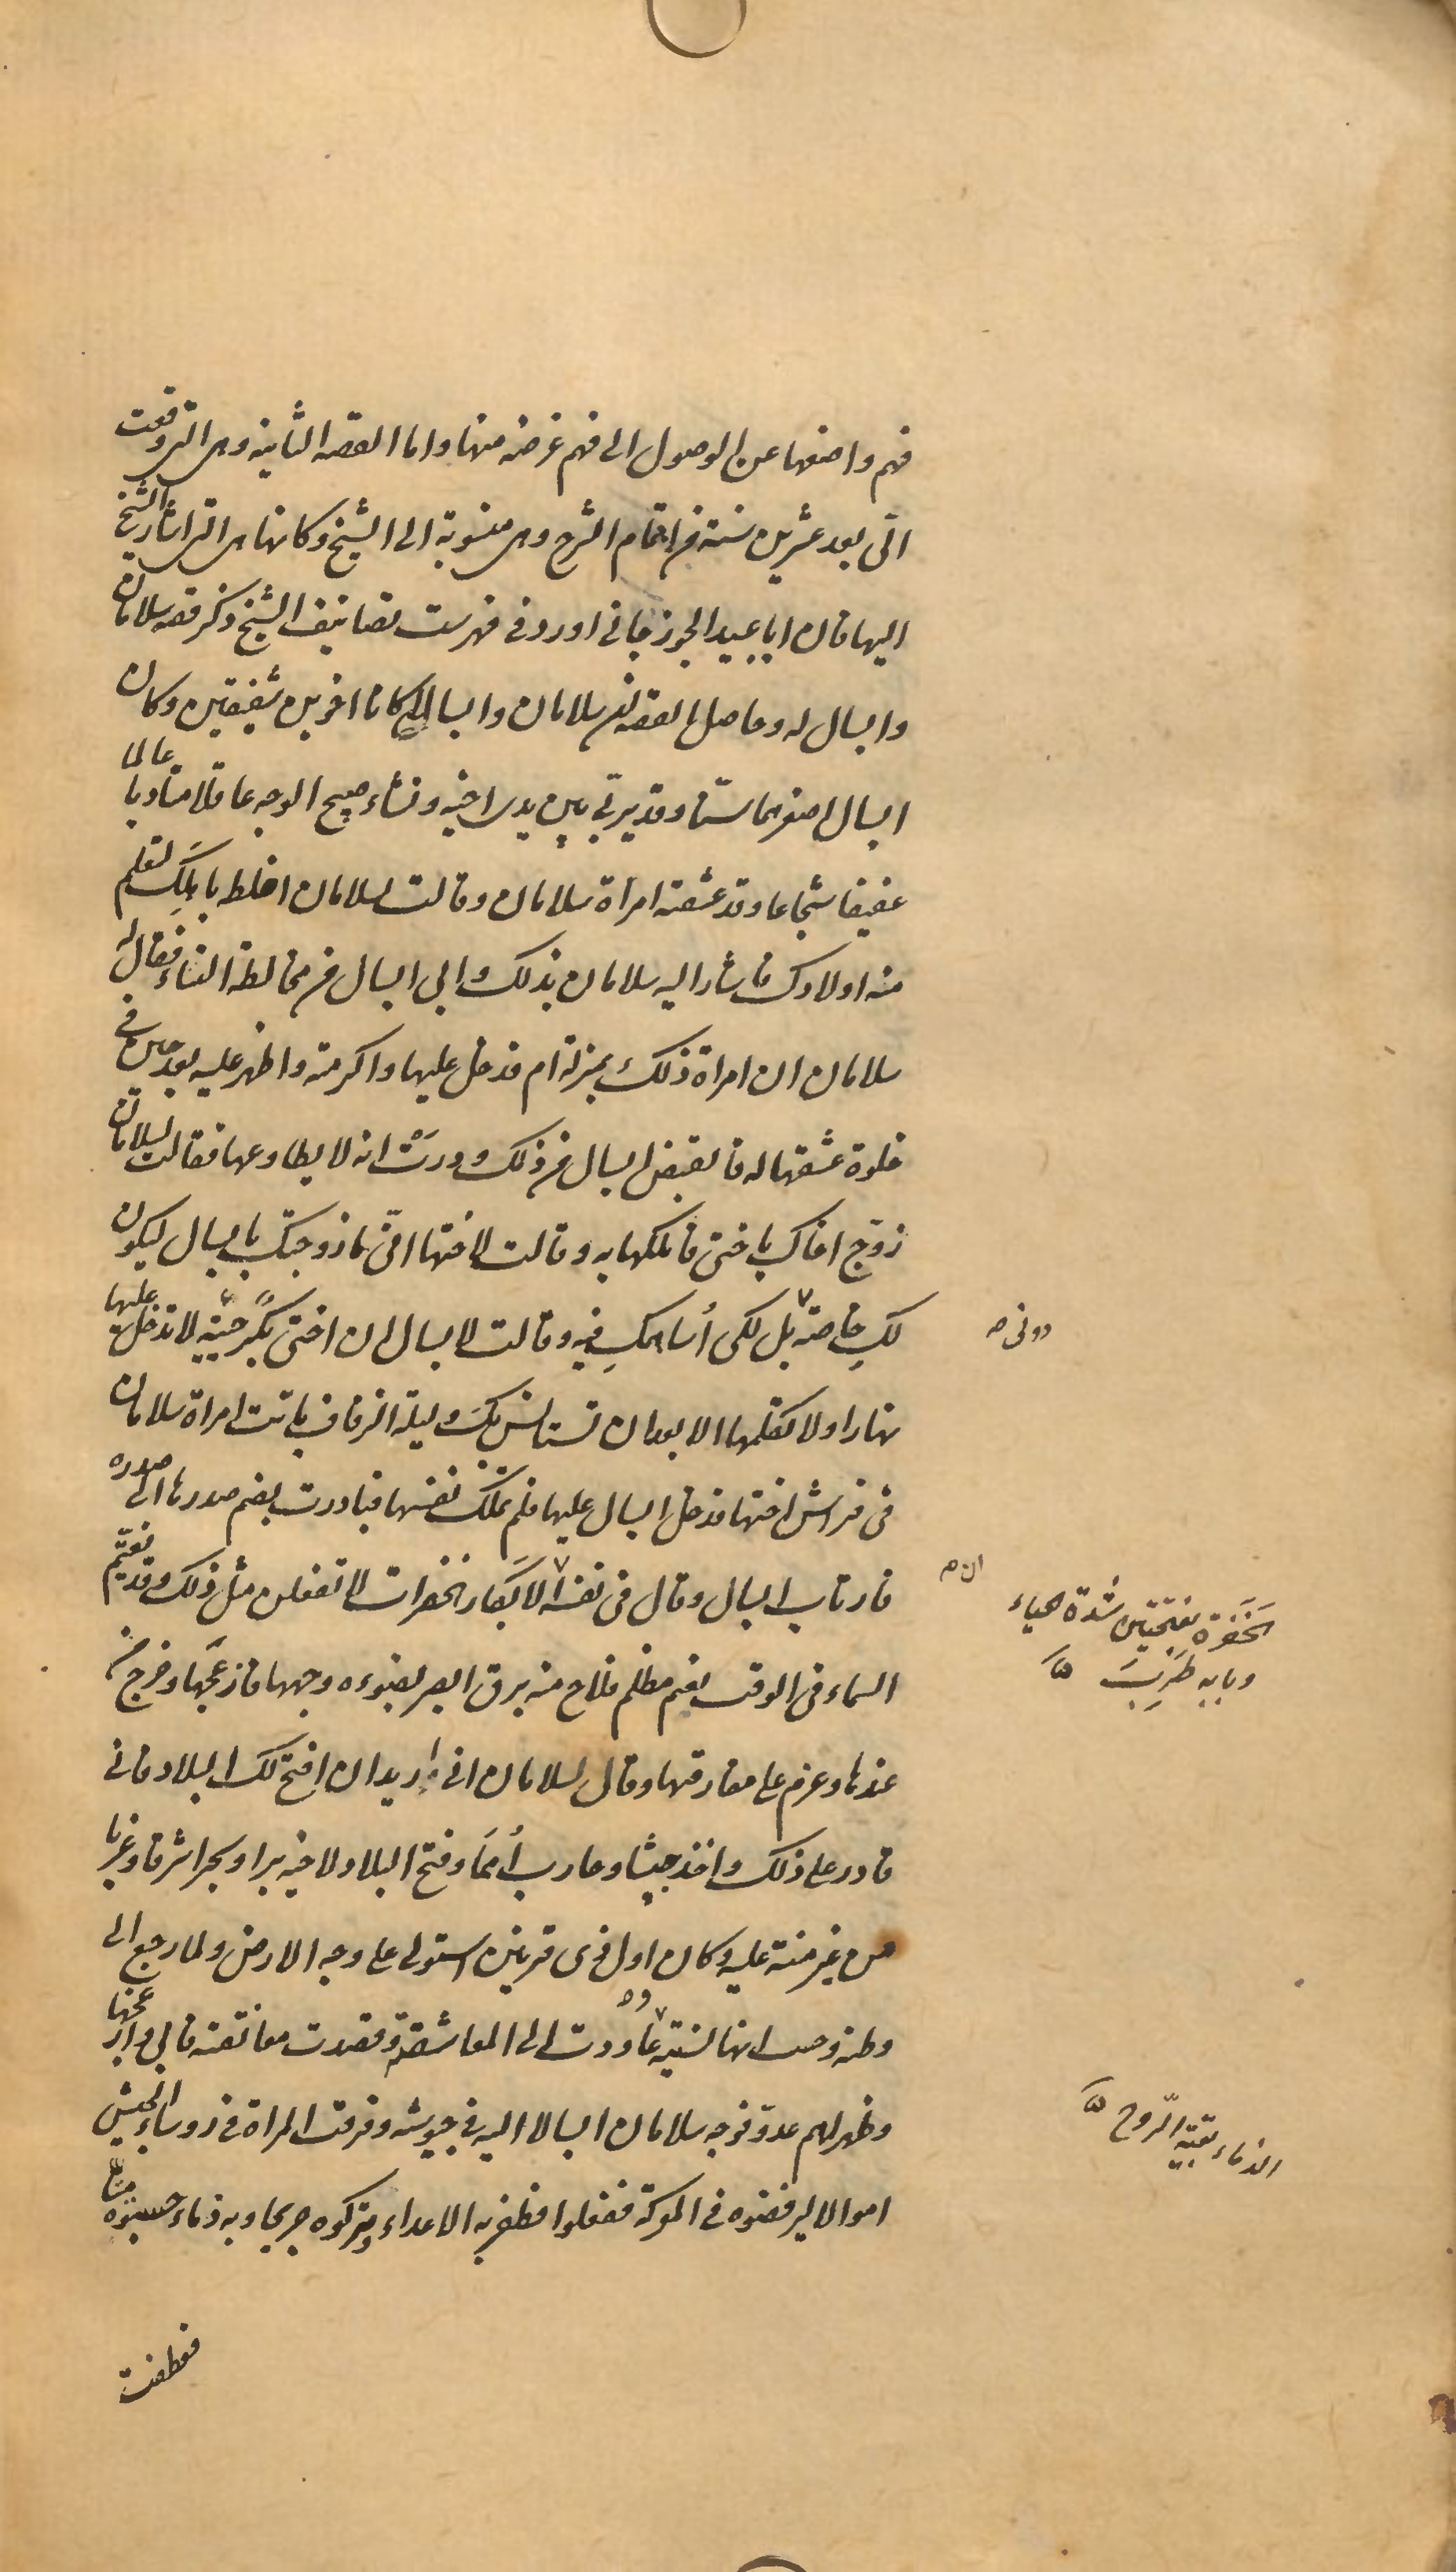 فهم واضعها عن الوصول الى فهم غرضه منها واما القصه الثانيه وهى التى وقعت
الىّ بعد عشرين سنة من اتمام الشرح وهى منسوبة الى الشيخ وكانها هى التى اشار الشيخ
اليها فان ابا عبيد الجوزجانى اورد فى فهرست تصانيف الشيخ ذكر قصه سلامان
وابسال له وحاصل القصه ان سلامان وابسالا كانا اخوين شقيقين وكان
ابسال اصغرهما سنّا وقد يربّى بين يدى اخيه ونشاء صبيح الوجه عاقلا متادبا عالما
عفيفا شجاعا وقد عشقته امراة سلامان وقالت لسلامان اخلط باهلك لتعلم
منه اولادك فاشار اليه سلامان بذلك وابى ابسال من مخالطة النساء فقال له
سلامان ان امراة ذلك بمنزلة ام فدخل عليها واكرمته واظهر عليه بعد حين فى
خلوة عشقها له فانقبض ابسال من ذلك ودرَتْ انه لا يطاوعها فقالت لسلامان
زوّج اخاك باختى فاملكها به وقالت لاختها انّى ما زوجتك بابسال ليكون
لكِ خاصة بل لكى أساهمكِ فيه وقالت لابسال ان اختى بكرٌ حييّه لا تدخل عليها
دونى صه
نهارا ولا تكلمها الا بعد ان تستانس بكَ وليلة الزفاف باتت امراة سلامان
فى فراش اختها فدخل ابسال عليها فلم تملك نفسها فبادرت بضم صدرها الى صدره
فارتاب ابسال وقال فى نفسه الابكار الخفرات لا تفعلن مثل ذلك وقد تغيّم
ان صه
الخَفَرة بفتحتين شدة الحياء
وبابه طَرِبَ
السماء فى الوقت بغيم مظلم فلاح منه برق ابصر بضوءه وجهها فازعجها وخرج من
عندها وعزم على مفارقتها وقال لسلامان انى اريد ان افتح لك البلاد فانى
قادر على ذلك واخذ جيشا وحارب أُمَمًا وفتح البلاد لاخيه برا وبحرا شرقا وغربا
من غير منة عليه وكان اول ذى قرنين استولى على وجه الارض ولما رجع الى
وطنه وحسب انها نسيته عاودت الى المعاشقة وقصدت معانقته فابى وازعجها
وظهر لهم عدوّ فوجه سلامان ابسالا اليه فى جيوشه وفرقت المراة فى روساء الجيش
الذماء بقيّه الرّوح
اموالا ليرفضوه فى المعركة ففعلوا فظفر به الاعداء وتركوه جريحا وبه ذماء حسبوه ميتا
فعطفت